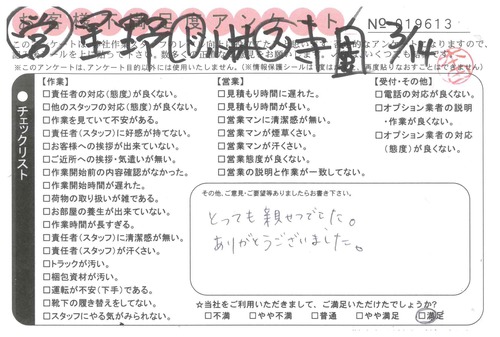 お客様不満足度アンケート
No 019613
3/14
このアンケートは
※このアンケートは、アンケート目的以外には使用いたしません。
チェックリスト
【作業】
□責任者の対応(態度)が良くない。
□他のスタッフの対応(態度)が良くない。
□作業を見ていて不安がある。
□責任者(スタッフ)に好感が持てない。
□お客様への挨拶が出来ていない。
□ご近所への挨拶・気遣いが無い。
□作業開始前の内容確認がなかった。
□作業開始時間が遅れた。
□荷物の取り扱いが雑である。
□お部屋の養生が出来ていない。
□作業時間が長すぎる。
□責任者(スタッフ)に清潔感が無い。
□責任者(スタッフ)が汗くさい。
□トラックが汚い。
□梱包資材が汚い。
□運転が不安(下手)である。
□靴下の履き替えをしてない。
□スタッフにやる気がみられない。
【営業】
□見積もり時間に遅れた。
□見積もり時間が長い。
□営業マンに清潔感が無い。
□営業マンが煙草くさい。
□営業マンが汗くさい。
□営業態度が良くない。
□営業の説明と作業が一致してない。
【受付・その他】
□電話の対応が良くない。
□オプション業者の説明
・作業が良くない。
□オプション業者の対応
(態度)が良くない。
その他、ご意見・ご要望等ありましたらお書き下さい。
とっても親せつでした。
ありがとうございました。
☆当社をご利用いただきまして、ご満足いただけたでしょうか?
□不満 □やや不満 □普通 □やや満足 □満足